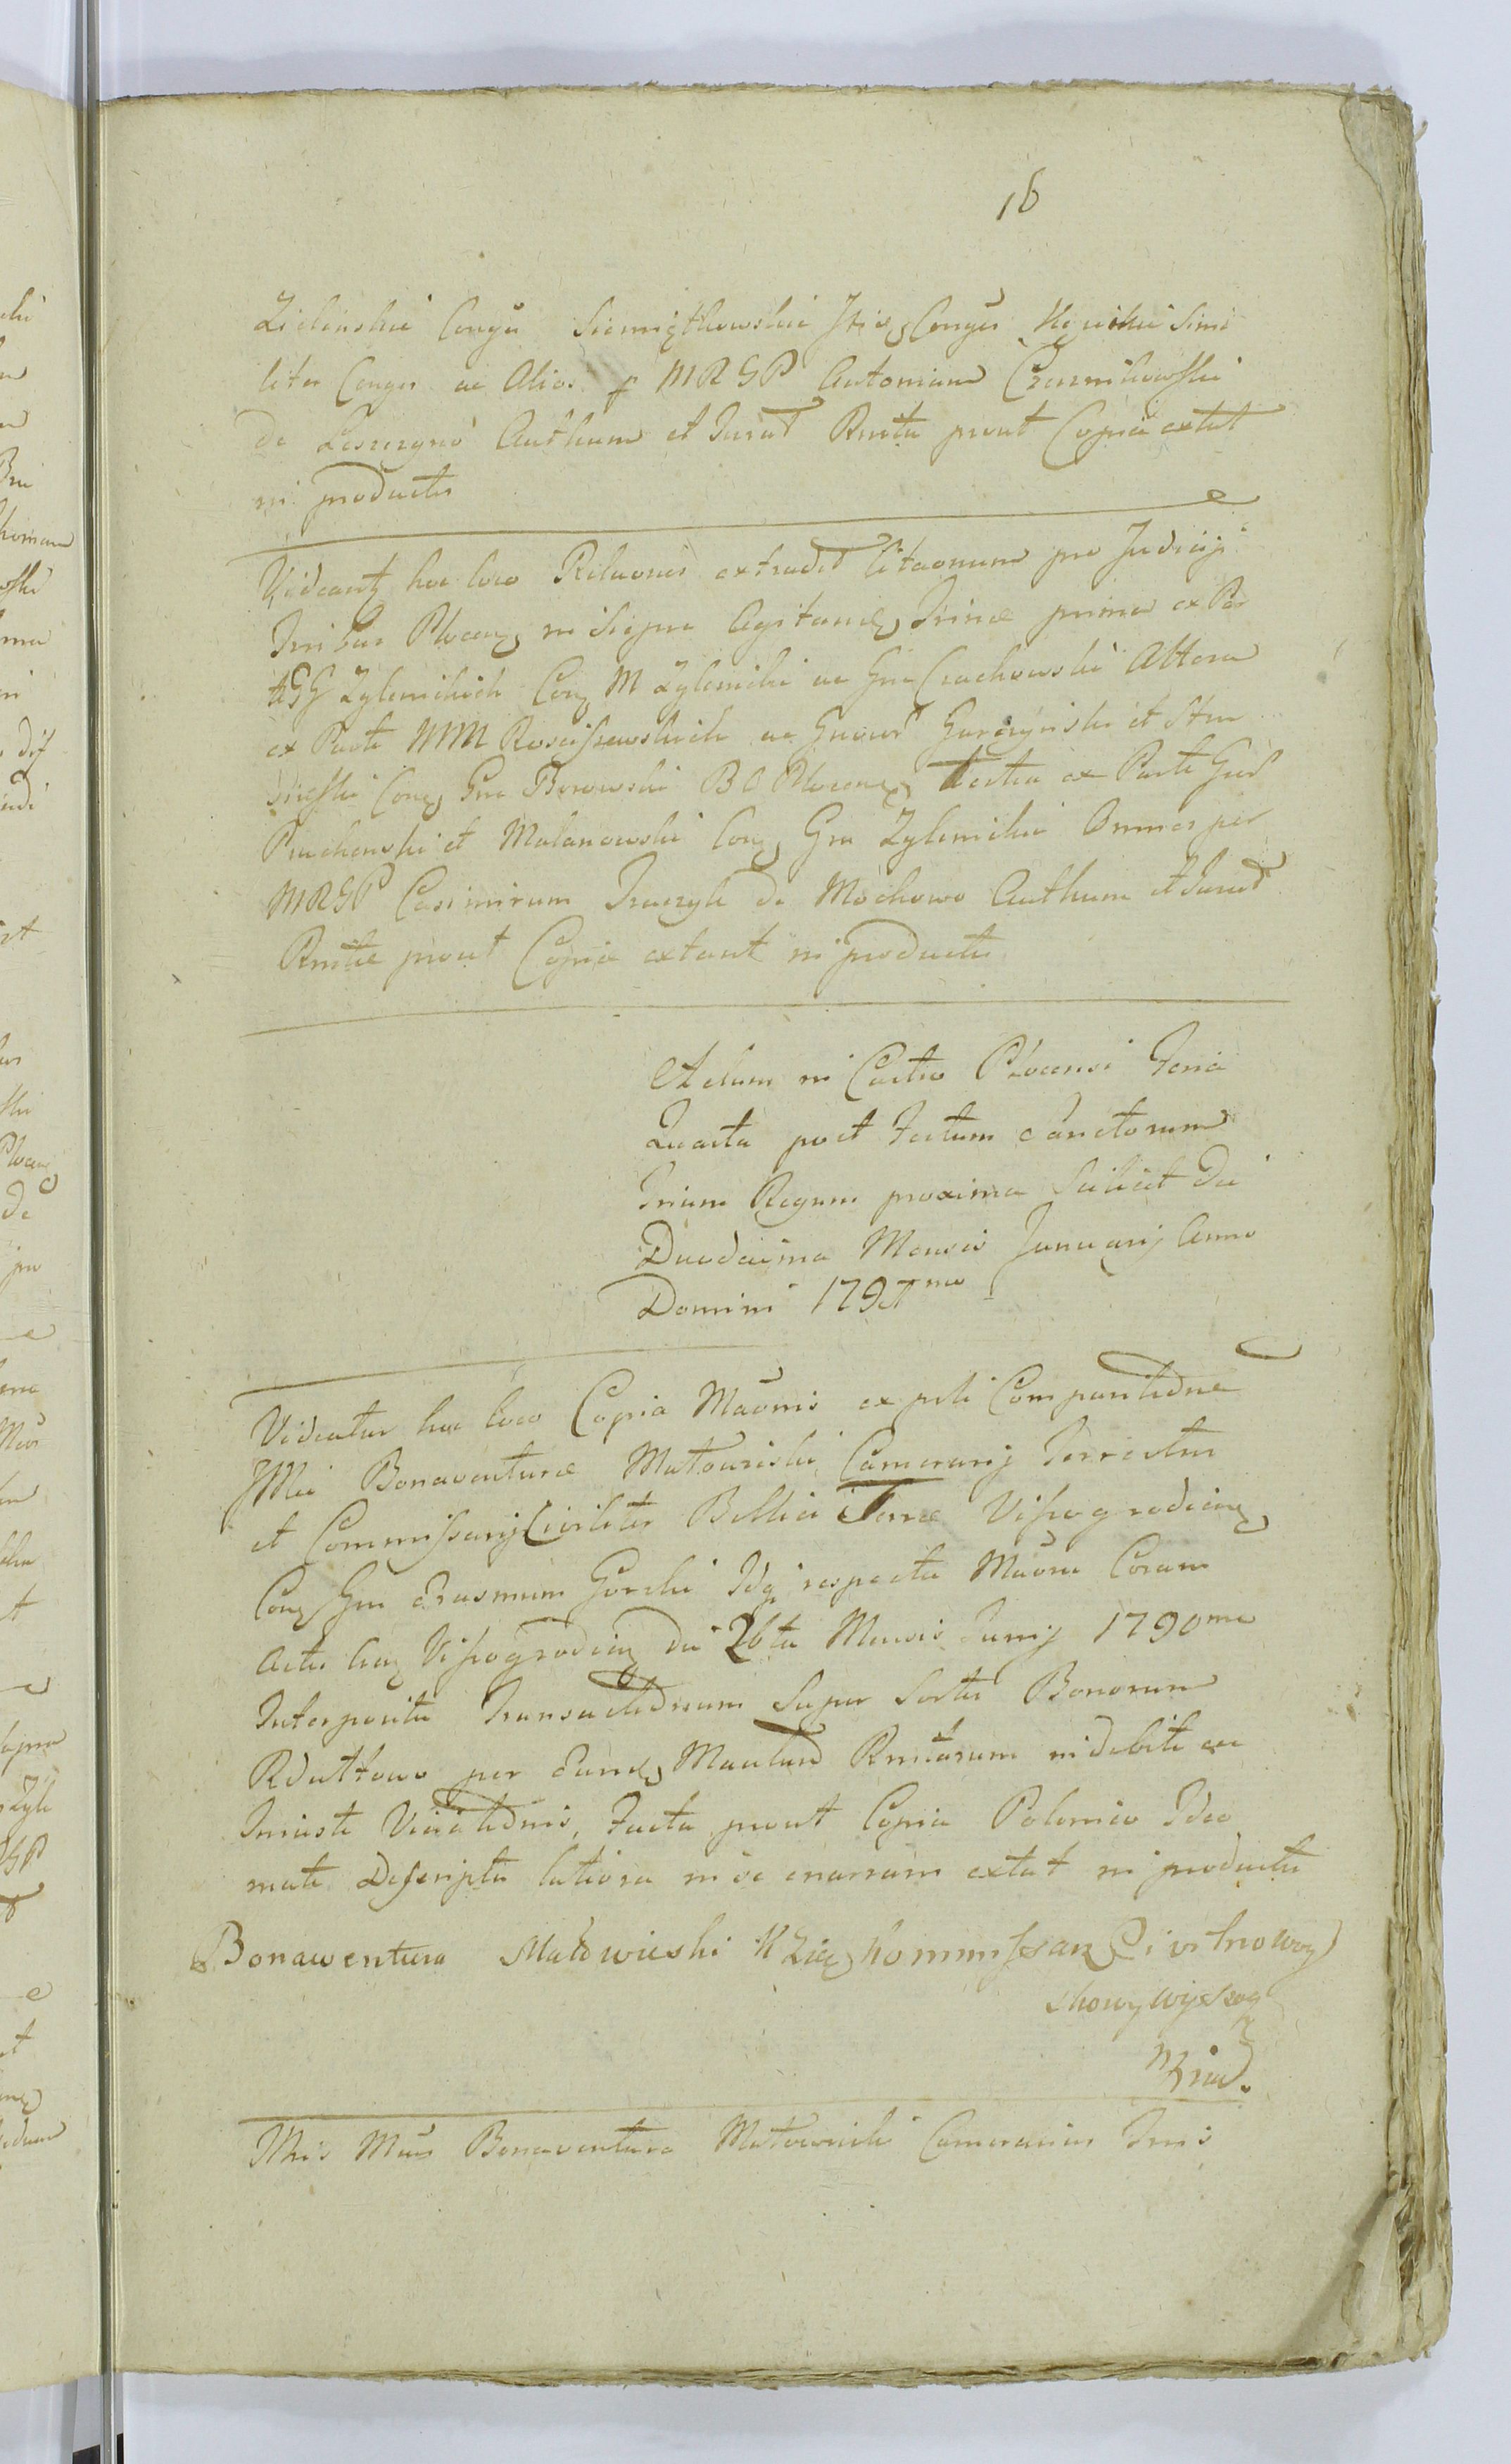 16
Zielinskie Conger Siemiątkowskie Itis, Conger Kępiskie Simi
liter Conger ac Alios p MRGP Antonium Czernikowski
de Leszczyno Authum et Jurat Rmta prout Copia extat
in productis
Videantz hoc loco Relaones extradit Citaonum pro Judicijs
Tribus Plocenz in Sierpia Agitand, Trinae prima ex Par
te GG Zylemskich Conz M Zylemski ac Gm Czachowski Altera
ex Parte MM Rosciszewskich ac Gnour Garczynski et Stu
dziesski Conz Gm Borowski BO Plocens, tertia ex Parte Gnd
Pruchenski et Malanowski Conz Gm Zylemskie Omnes per
MRGP Casimirum Traczyk de Mochowo Authum et Jurat
Rmtae prout Copiae extant in productis
Actum in Castro Plocensi Feria
Quarta post Festum Sanctorum
Trium Regum proxima Scilicet Die
Duodecima Mensis Januarij Anno
Domini 1791mo
Videatur hoc loco Copia Maonis ex psli Comparitione
JMci Bonaventurae Matowieski Camerarij Terrestris
et Commissarij Civilitis Bellici Terrae Vissogrodiens
Conz Gm Erasmum Gorski Idq respectu Maona Coram
Actis hcz Vissogrodienz die 26ta Mensis Junij 1790mo
Interposita Transactionum Super Sortes Bonorum
Rdutkowo per Eund, Manland Rmtarum indebite ac
Iniuste Viciationis, Facta prout Copia Polonico Ideo
mate Descripta latiora in se enarram extat in productis
Bonawentura Matowieski K Zię, kommissarz Ciwilno woy
skowy Wyszog
mp
JMcis Mcus Bonaventura Matowieski Camerarius Trris